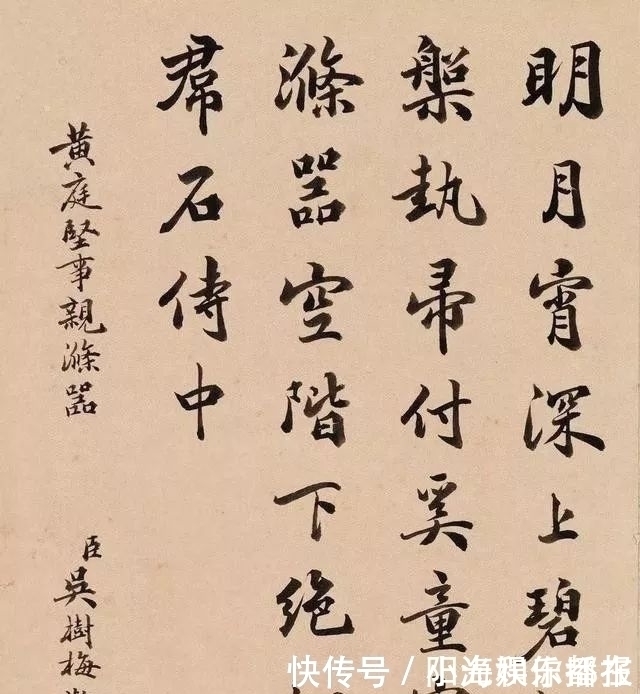 明月宵深上碧
槃執帚付奚童
滌器空階下絕
帬石侍中
黃庭堅事親滌器
臣吳樹梅
快传号 /